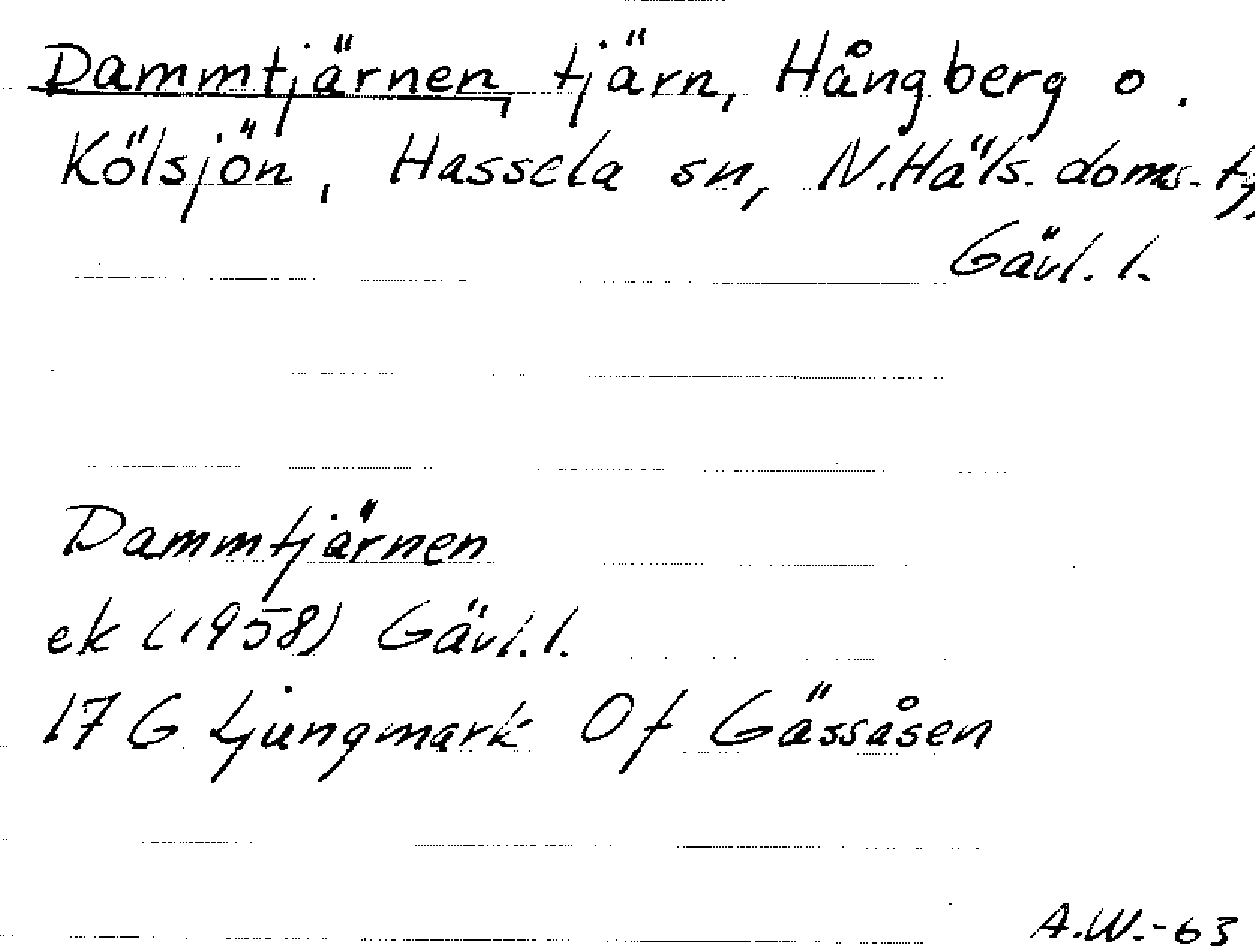 Dammtjärnen, tjärn, Hångberg o.
Kölsjön, Hassela sn, N.Häls. doms.
Gävl. l.
Dammtjärnen
ek (1958) Gävl. l.
17 G Ljungmark 0 f Gässåsen
A.W.-63